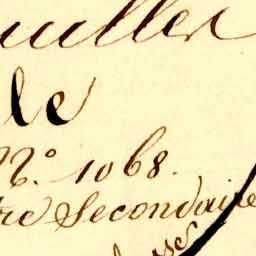 uiller
le
N.° 1068.
tre Secondaire